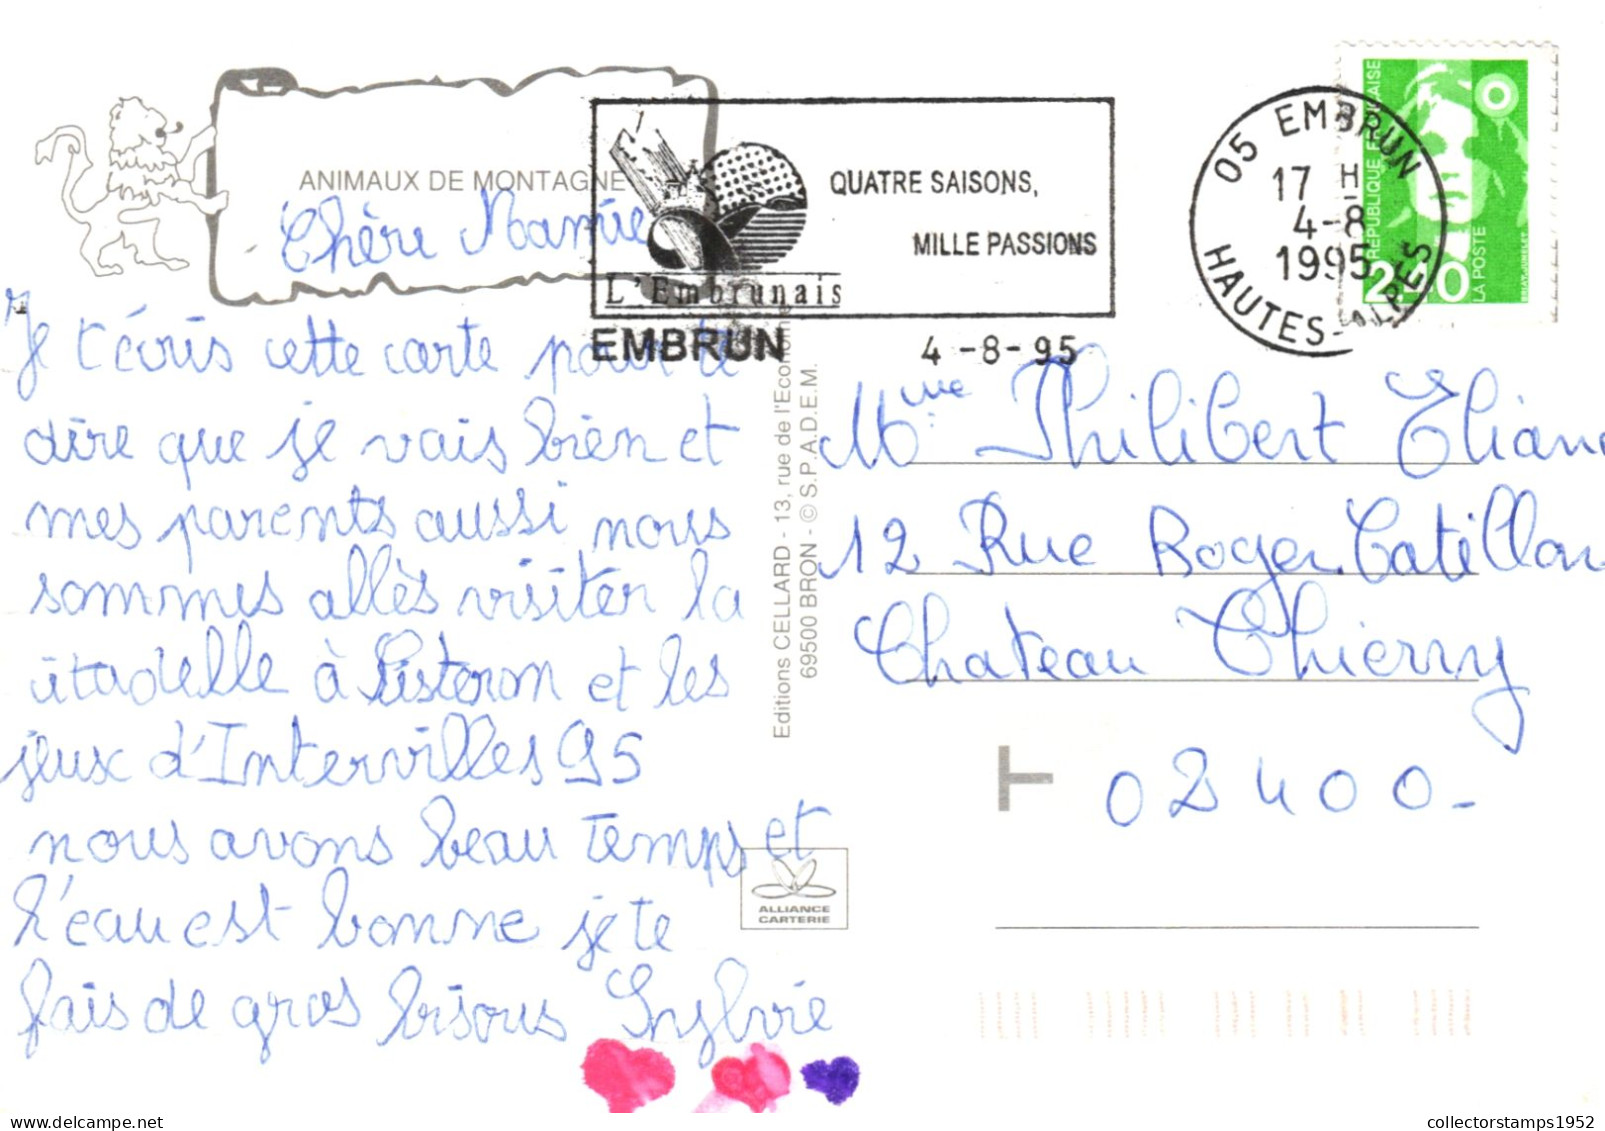 ANIMAUX DE MONTAGNE
Chère Mamie
Je t'écris cette carte pour te
dire que je vais bien et
mes parents aussi nous
sommes allès visiter la
citadelle à Sisteron et les
jeux d'Intervilles 95
nous avons beau temps et
l'eau est bonne je te
fais de gros bisous Sylvie
QUATRE SAISONS,
MILLE PASSIONS
L'Embrunais
EMBRUN
4-8-95
05 EMBRUN
17 H
4-8
1995
HAUTES-ALPES
RÉPUBLIQUE FRANÇAISE
2,40
LA POSTE
Editions CELLARD - 13, rue de l'Economie
69500 BRON - © S.P.A.D.E.M.
Mme Philibert Eliane
12 Rue Roger Catillon
Chateau Thierry
02400-
ALLIANCE
CARTERIE
collectorstamps1952